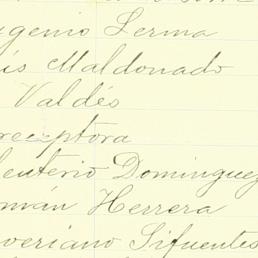 ugenio Lerma
is Maldonado
Valdés
receptora
leuterio Domínguez
mán Herrera
veriano Sifuentes